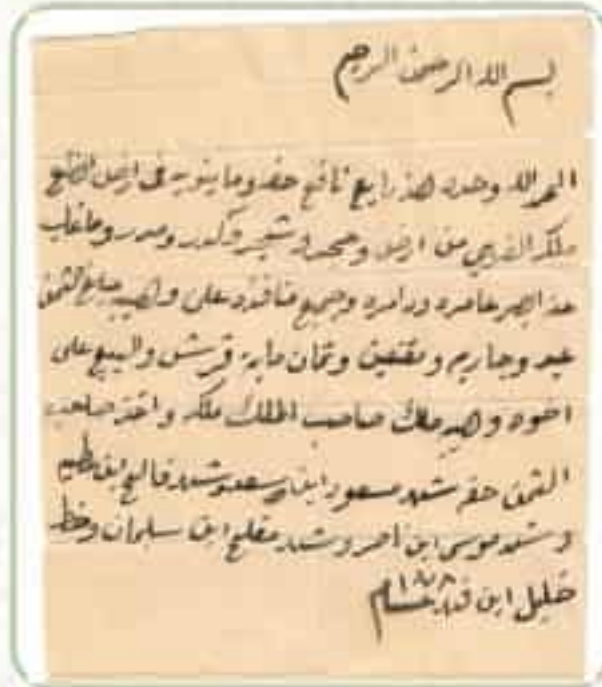 بسم الله الرحمن الرحيم
الحمد لله وحده هذ رابع نافع حقه وما ينوبه في ارض
ملكه من ارض وحجر وشجر وكدر ومدر وما غاب
عامره ودامره وجميع منافذه على وهيب مبلغ الثمن
عبد وجاريه وثمان مايه قرش والبيع على
اخوه وهيب ملك صاحب الملك ملكه واخذ صاحب
الثمن حقه شهد مسعود ابن سعد وشهد فالح ابن
وشهد موسى ابن ناصر وشهد مفلح ابن سليمان وخط
خليل ابن